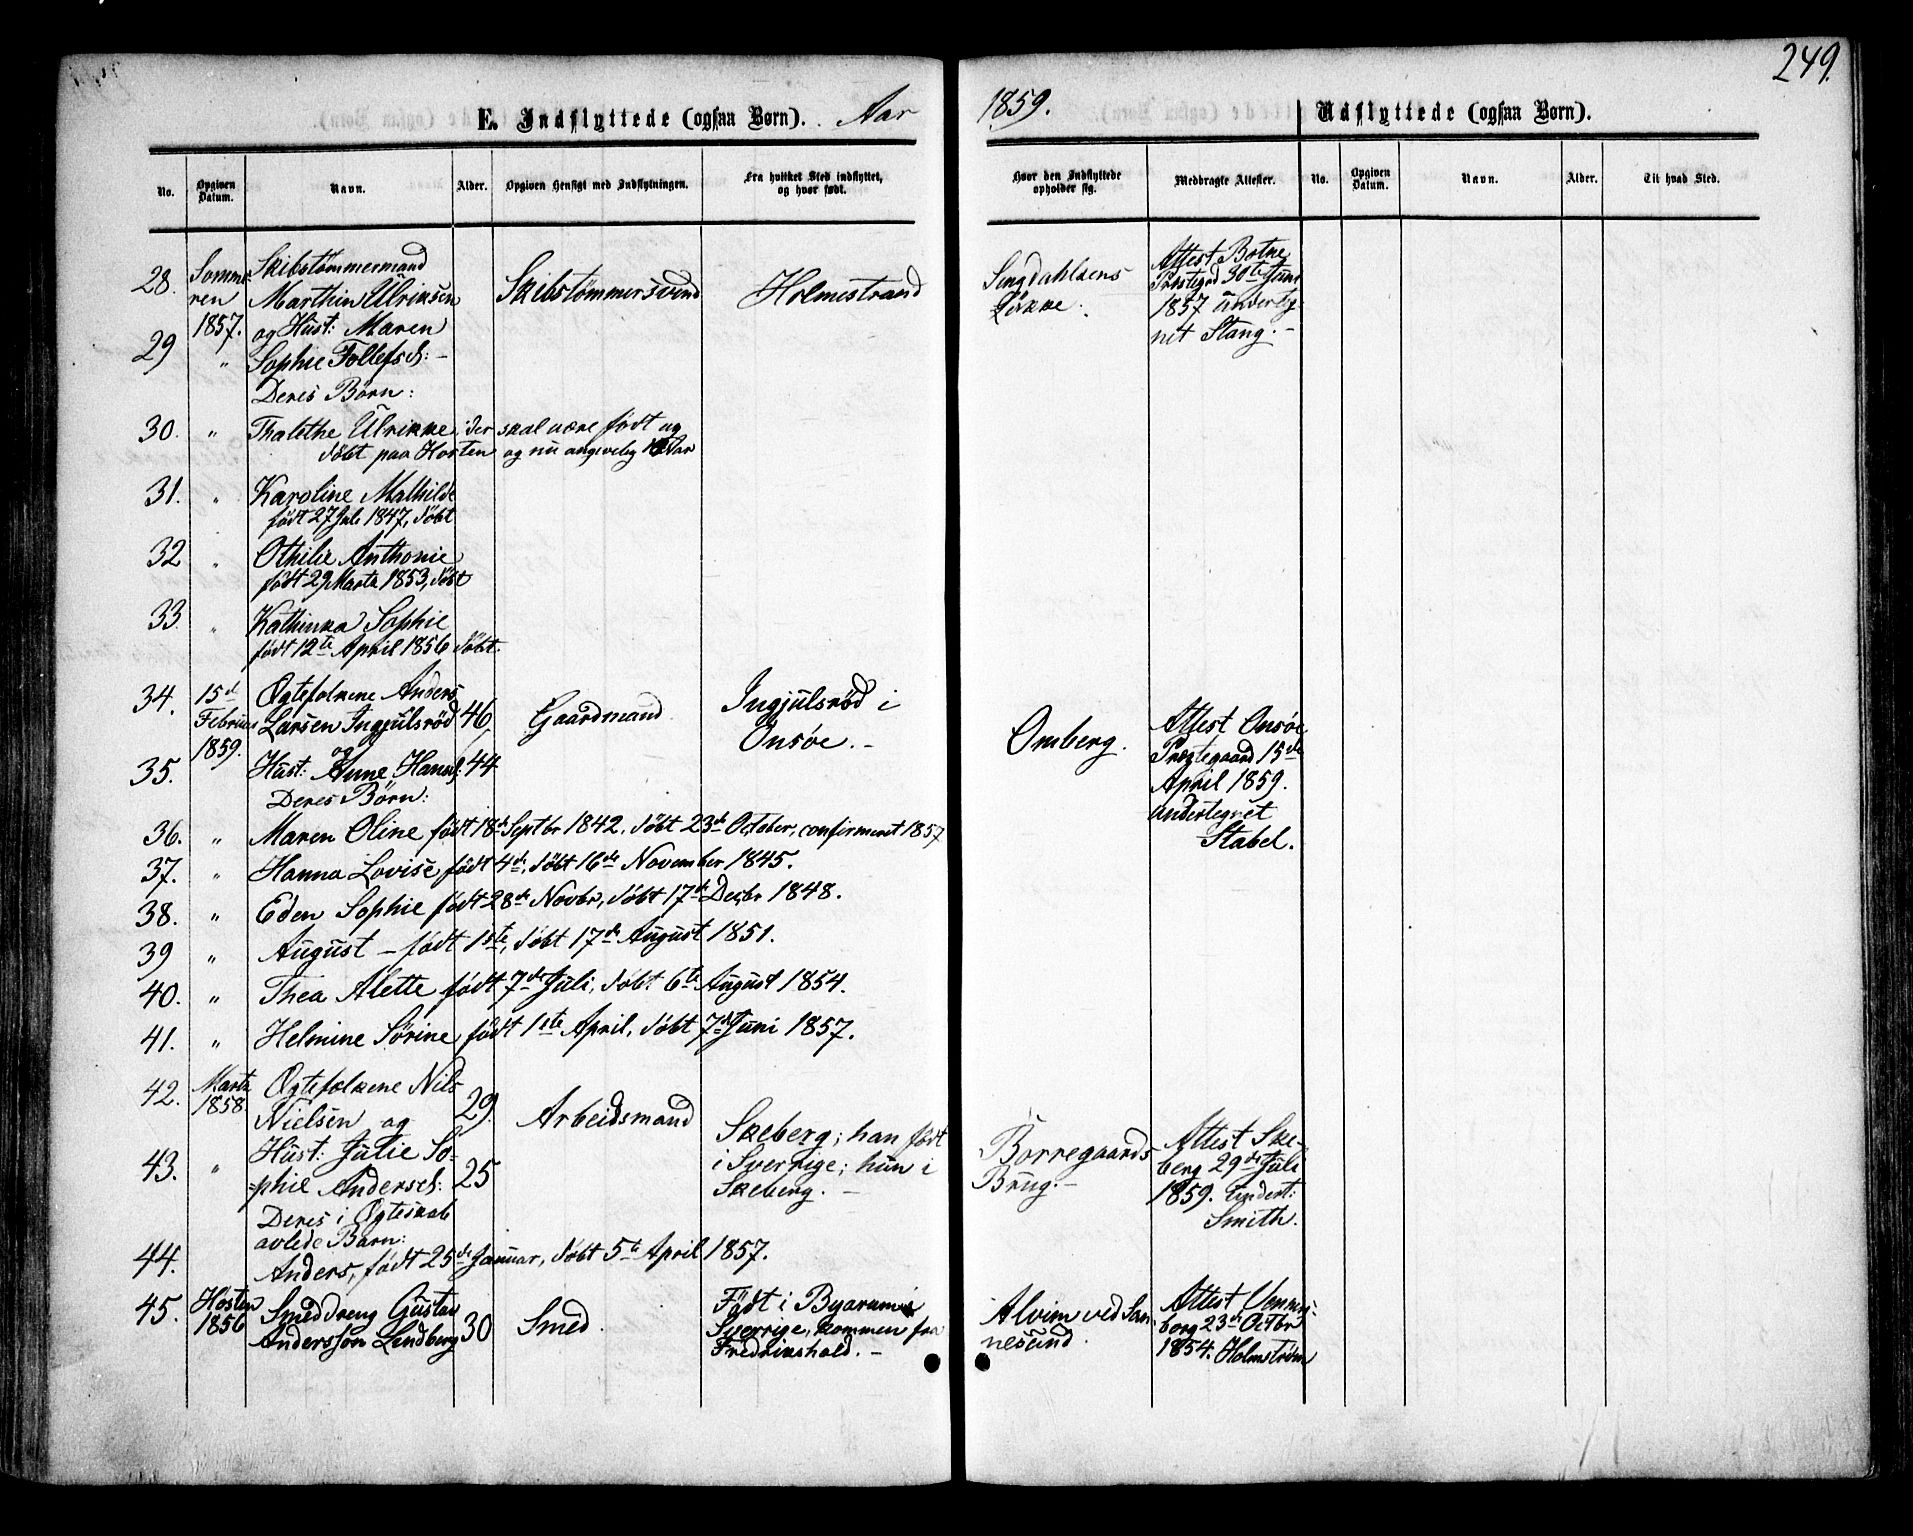 249.
E. Indflyttede (ogsaa Børn). Aar 1859. Udflyttede (ogsaa Børn).
No. Opgiven Datum. Navn. Alder. Opgiven Hensigt med Indflytningen. Fra hvilket Sted indflyttet, og hvor født. Hvor den Indflyttede opholder sig. Medbragte Attester. No. Opgiven Datum. Navn. Alder. Til hvad Sted.
28. Somme- Skibstömmermand
ren Marthin Ulriksen Skibstömmersvend Holmestrand
1857. og Hust: Maren
29 " Sophie Tollefsd: -
Deres Børn:
30. " Thalethe Ulrikke, der skal være født og
döbt paa Horten og nu angivelig Aar
31. " Karoline Mathilde
født 27 Juli 1847, döbt
32 " Othilie Anthonie
født 29 Marts 1853, döbt
33 " Kathinka Sophie
født 12te April 1856 döbt.
34. 15de Ögtefolkene Anders Ingjulsröd i
Februar Larsen Ingjulsröd 46 Gaardmand Onsöe. -
1859. og
35. Hust: Anne Hansd: 44
Deres Børn:
36. " Maren Oline født 18de Septbr 1842, döbt 23de October, confirmeret 1857
37. " Hanna Lovise, født 4de, döbt 16de November 1845.
38. " Eden Sophie født 28de Novbr, döbt 17de Decbr 1848.
39 " August - født 1ste, döbt 17de August 1851.
40. " Thea Alette født 7de Juli, döbt 6te August 1854.
41. " Helmine Sörine født 1ste April, döbt 7de Juni 1857.
42. Marts Ögtefolkene Nils
1858. Nielsen og 29. Arbeidsmand Skeberg; han født
43. " Hust: Julie So- i Sverrige; hun i
-phie Andersd: 25 Skeberg. -
Deres i Ögteskab
avlede Barn:
44. Anders, født 25de Januar, döbt 5te April 1857.
45. Hosten Smeddreng Gustav Födt i Byarum i
1856 Andersson Lindberg 30 Smed. Sverrige, kommen fra
Fredrikshald. -
Singdahlsens Attest Botne
Løkke. Præstegrd 30te Juni
1857 underteg-
net Stang. -
Omberg. Attest Onsöe
Præstegaard 15de
April 1859.
undertegnet
Stabel.
Borregaards Attest Ske-
Brug. - berg 29de Juli
1859. Undert:
Smith.
Alvim ved San- Attest Venners-
nesund. borg 23de Octbr
1854. Holmström